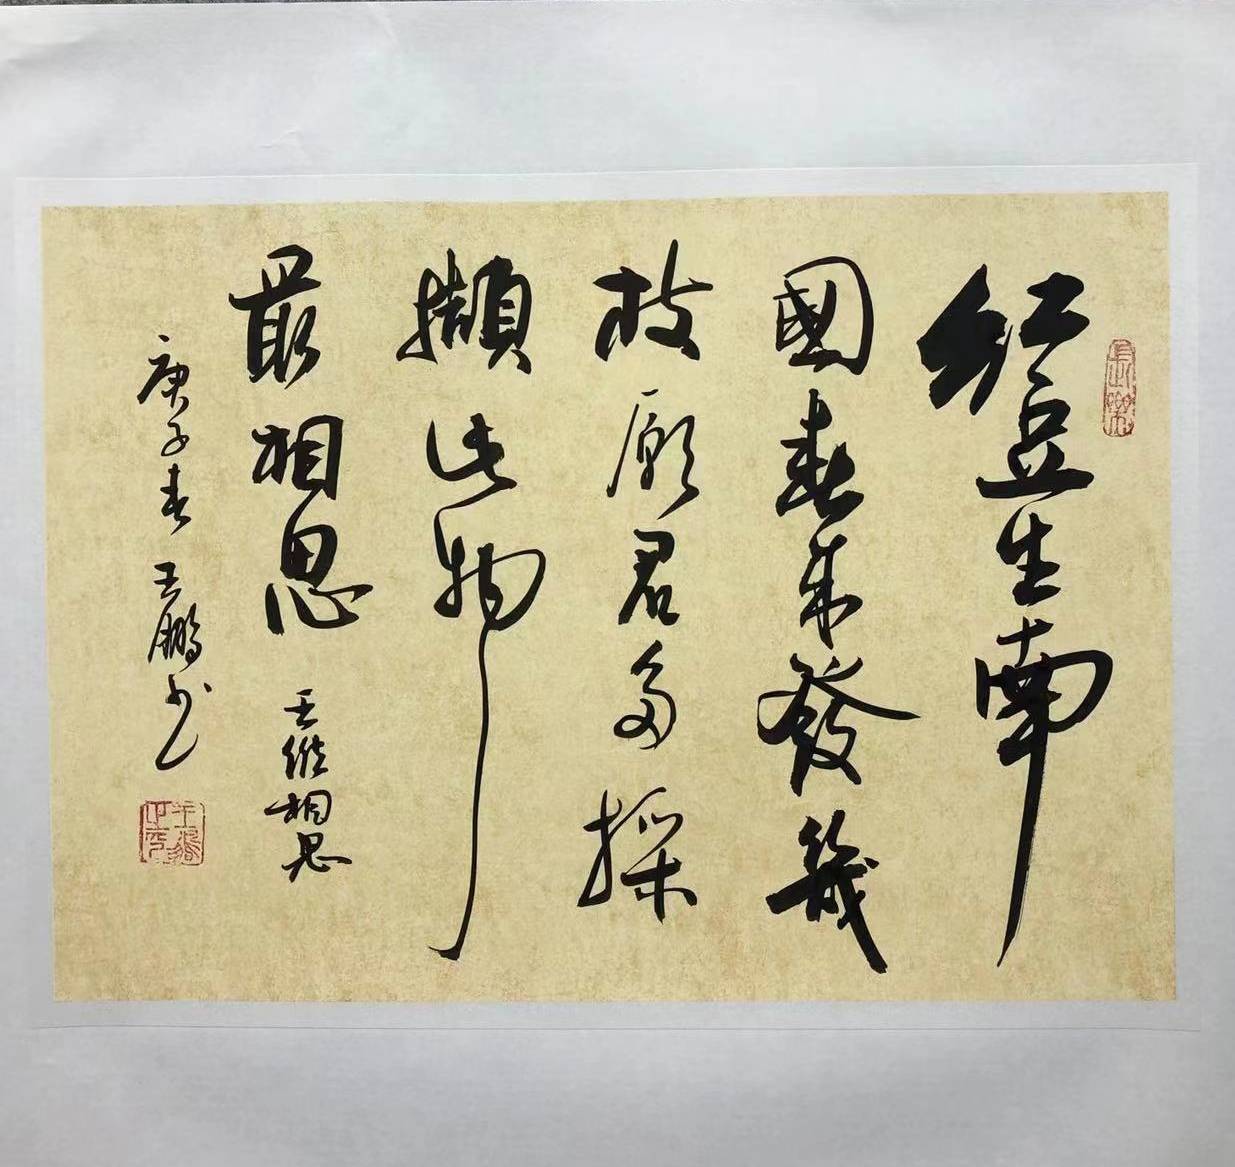 紅豆生南
國春來發幾
枝願君多採
擷此物
最相思
王維相思
庚子春王鵬書
長樂
王鵬